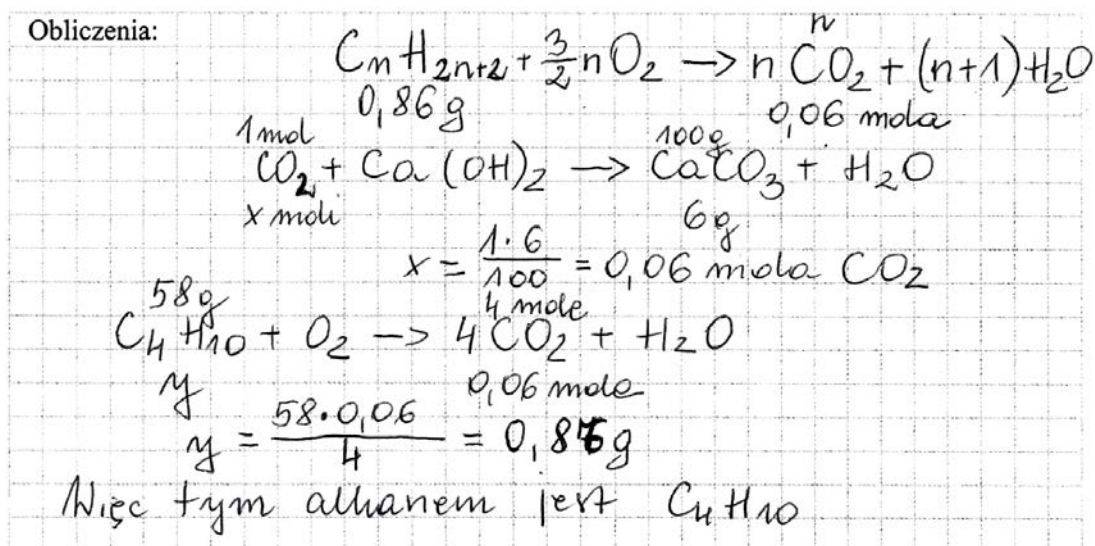 Obliczenia:
n
CnH2n+2 + 3/2 nO2 → n CO2 + (n+1)H2O
0,86g 0,06 mola
1mol 100g
CO2 + Ca(OH)2 → CaCO3 + H2O
x moli 6g
x = 1·6/100 = 0,06 mola CO2
58g 4 mole
C4H10 + O2 → 4CO2 + H2O
y 0,06 mola
y = 58·0,06/4 = 0,87g
Więc tym alkanem jest C4H10